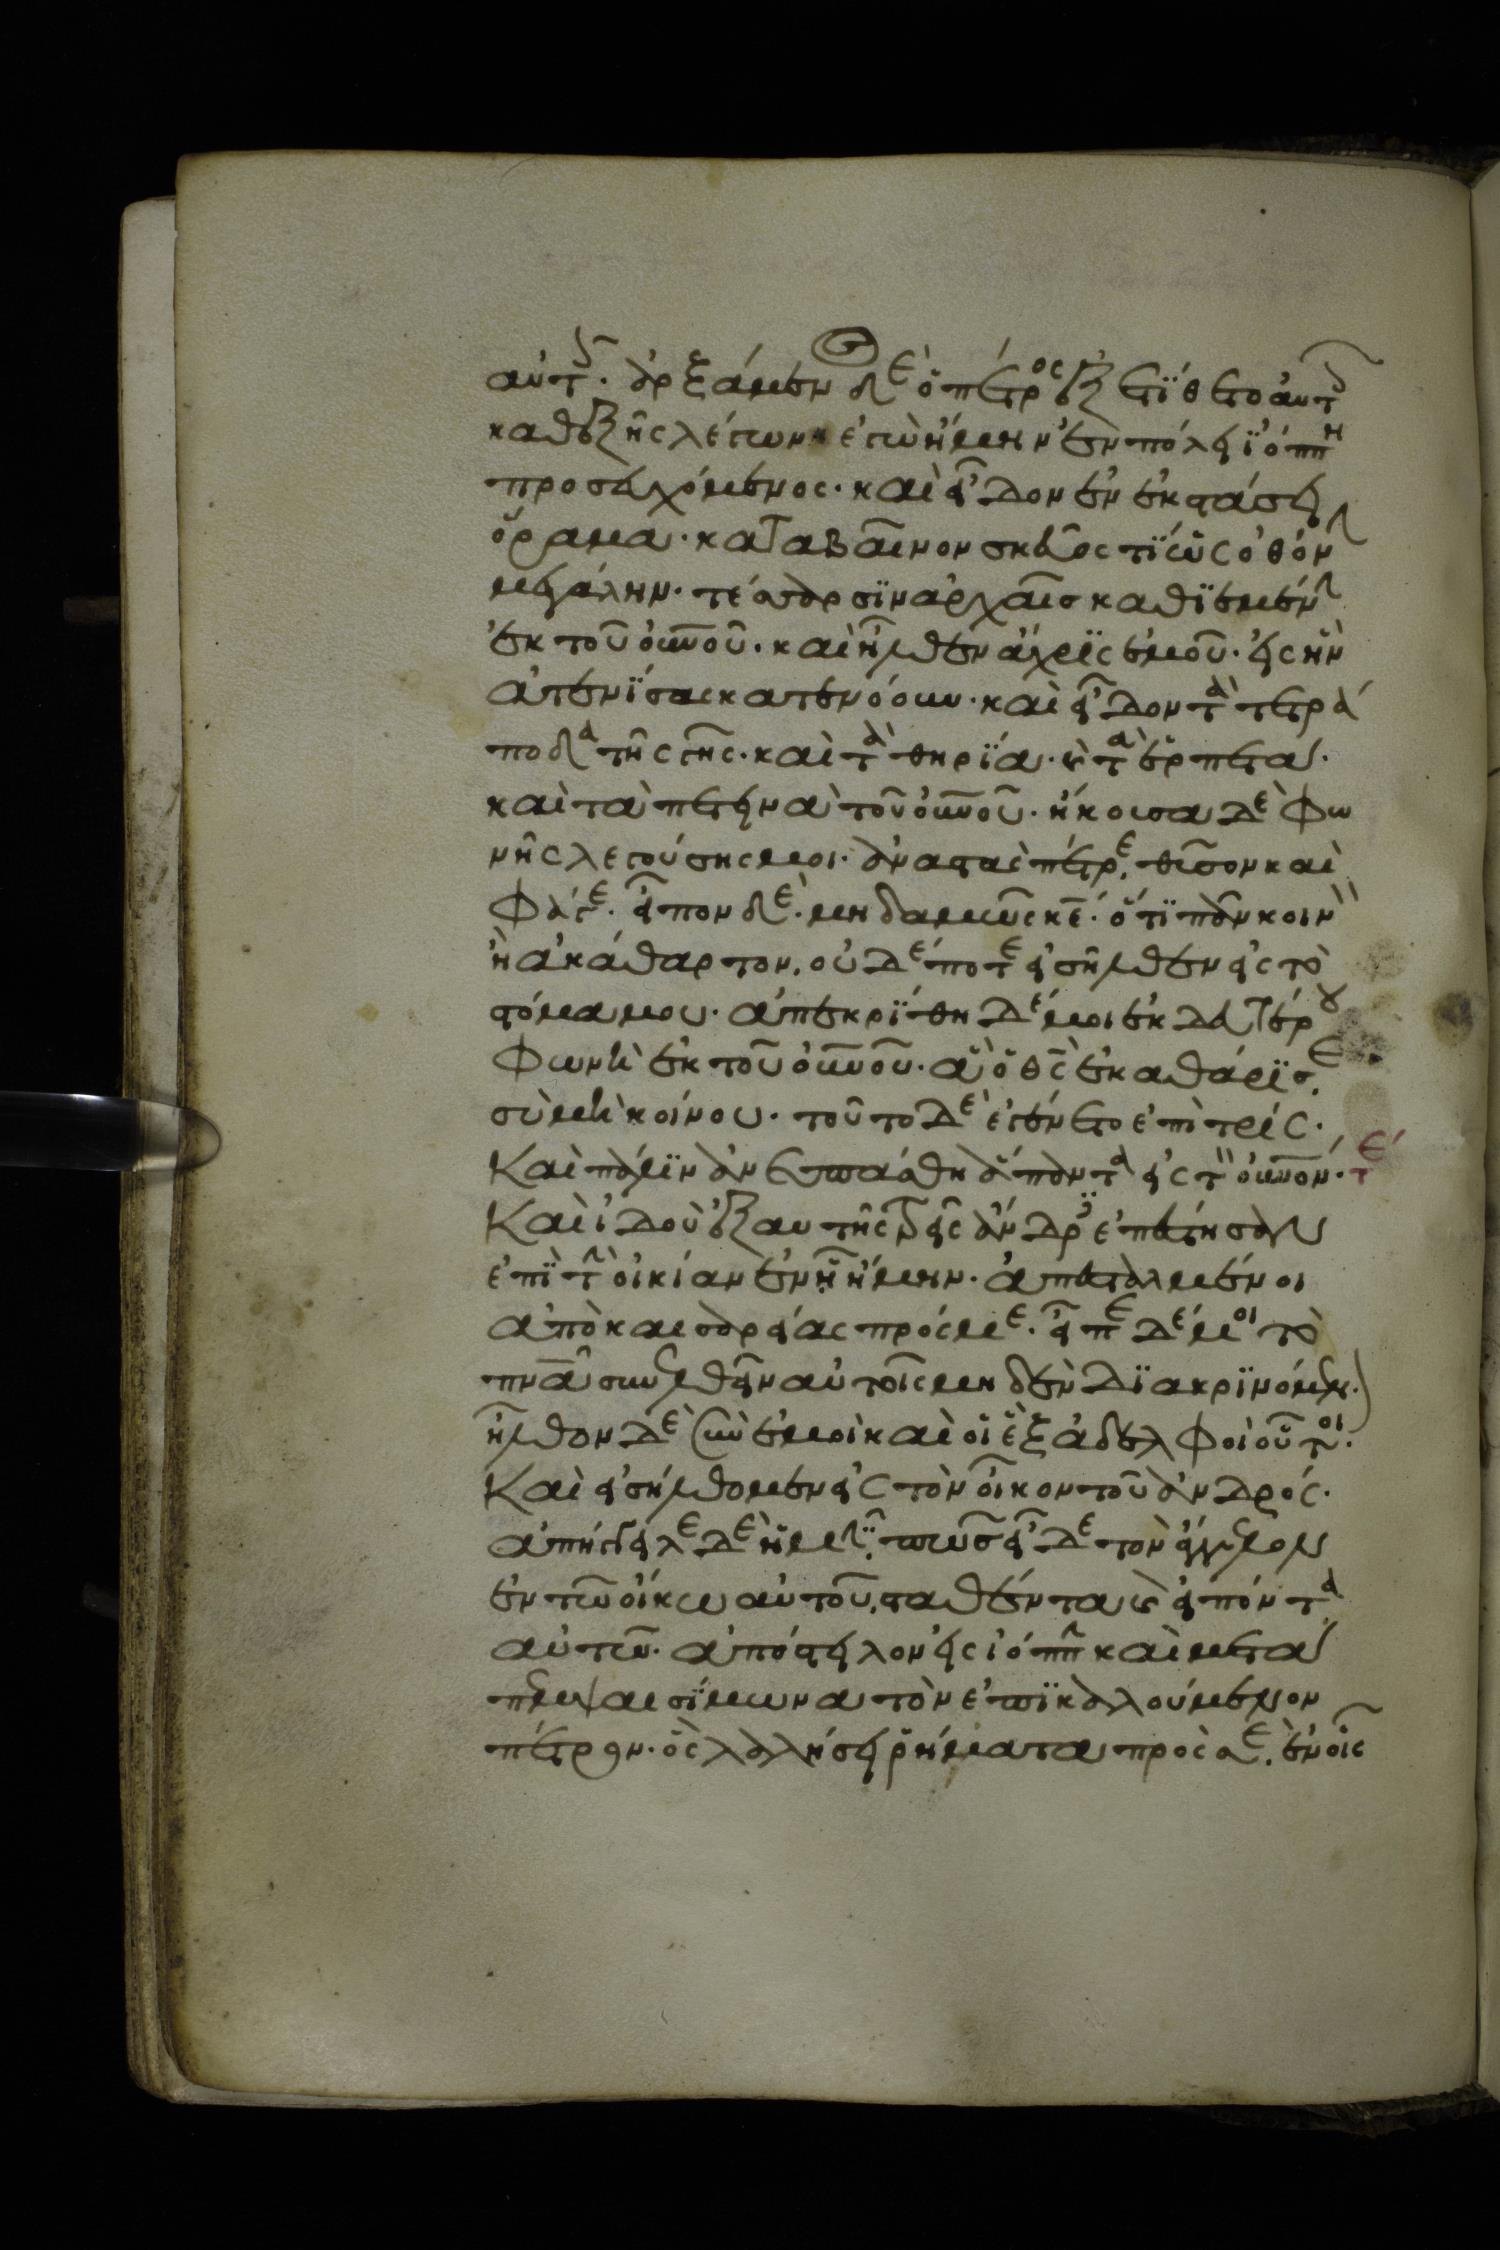 αὐτ. ἀρξάμεν δὲ ὁ πέτρος ἐξετίθετο αὐτ
καθεξῆς λέγων· ἐγὼ ἤμην ἐν πόλει ἰόππη
προσευχόμενος. καὶ εἶδον ἐν ἐκστάσει
ὅραμα. καταβαῖνον σκεῦος τί ὡς ὀθόν
μεγάλην. τέσσαρσιν ἀρχαῖσ καθιεμέν
ἐκ τοῦ οὐνοῦ. καὶ ἦλθεν ἄχρις ἐμοῦ. εἰς ἣν
ἀτενίσας κατενόουν. καὶ εἶδον τὰ τετρά
ποδα τῆς γῆς. καὶ τὰ θηρία. κ τὰ ἑρπετα.
καὶ τὰ πετεινὰ τοῦ οὐνοῦ. ἤκουσα δὲ φω
νῆς λεγούσης μοι. ἀναστὰς πέτρε, θῦσον καὶ
φάγε. εἶπον δέ. μηδαμῶς κε. ὅτι πᾶν κοινὸν
ἢ ἀκάθαρτον, οὐδέποτε εἰσῆλθεν εἰς τὸ
στόμα μου. ἀπεκρίθη δέ μοι ἐκ δευτέρου
φωνὴ ἐκ τοῦ οὐνοῦ. ἃ ὁ θς ἐκαθάρισε,
σὺ μὴ κοίνου. τοῦτο δὲ ἐγένετο ἐπὶ τρίς.
Καὶ πάλιν ἀνεσπάσθη ἅπαντα εἰς τὸν οὐνον. τέ
Καὶ ἰδοὺ ἐξαυτῆς τρεῖς ἄνδρες ἐπέστησαν
ἐπὶ τὴν οἰκίαν ἐν ᾗ ἤμην. ἀπεσταλμένοι
ἀπὸ καισαρείας πρός με. εἶπε δέ μοι τὸ
πνᾶ συνελθεῖν αὐτοῖς μηδὲν διακρινόμεν.
ἦλθον δὲ σὺν ἐμοὶ καὶ οἱ ἓξ ἀδελφοὶ οὗτοι.
Καὶ εἰσήλθομεν εἰς τὸν οἶκον τοῦ ἀνδρός.
ἀπήγγειλε δὲ ἡμῖν, πῶσ εἶδε τὸν ἄγγελον
ἐν τῶ οἴκω αὐτοῦ, σταθέντα κ εἰπόντα
αὐτῶ. ἀπόστειλον εἰς ἰόππην καὶ μετά
πεμψαι σίμωνα τὸν ἐπικαλούμενον
πέτρον. ὃς λαλήσει ῥήματα πρὸς σὲ, ἐν οἷς